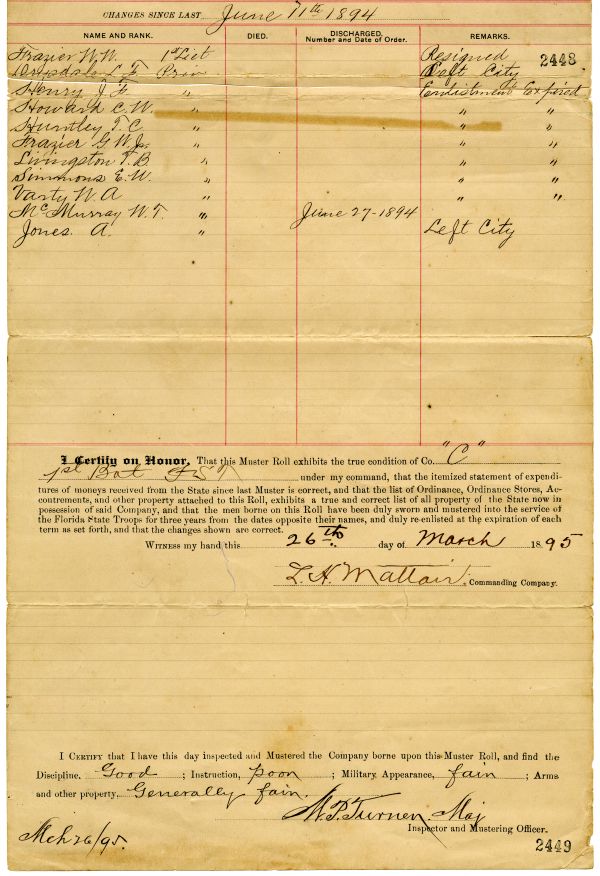 CHANGES SINCE LAST June 11th 1894
NAME AND RANK. DIED. DISCHARGED. Number and Date of Order. REMARKS.
Frazier W.W. 1st Liet Resigned 2448
Drysdale L. F. Priv Left City
Henry J. F. " Enlistment Expired
Howard C. W. " " "
Huntley T. C " " "
Frazier G W Jr. " " "
Livingston T. B " " "
Simmons E. W. " " "
Varty W. A " " "
McMurray W. T. " June 27-1894
Jones. A. " Left City
I Certify on Honor. That this Muster Roll exhibits the true condition of Co. "C"
1st Bat F S T under my command, that the itemized statement of expendi-
tures of moneys received from the State since last Muster is correct, and that the list of Ordinance, Ordinance Stores, Ac-
coutrements, and other property attached to this Roll, exhibits a true and correct list of all property of the State now in
possession of said Company, and that the men borne on this Roll have been duly sworn and mustered into the service of
the Florida State Troops for three years from the dates opposite their names, and duly re-enlisted at the expiration of each
term as set forth, and that the changes shown are correct.
WITNESS my hand this 26th day of March 1895
L. H. Mattair. Commanding Company.
I CERTIFY that I have this day inspected and Mustered the Company borne upon this Muster Roll, and find the
Discipline, Good ; Instruction, poor ; Military, Appearance, fair ; Arms
and other property, Generally fair.
W. P. Turner, Maj
Inspector and Mustering Officer.
Mch 26/95.
2449